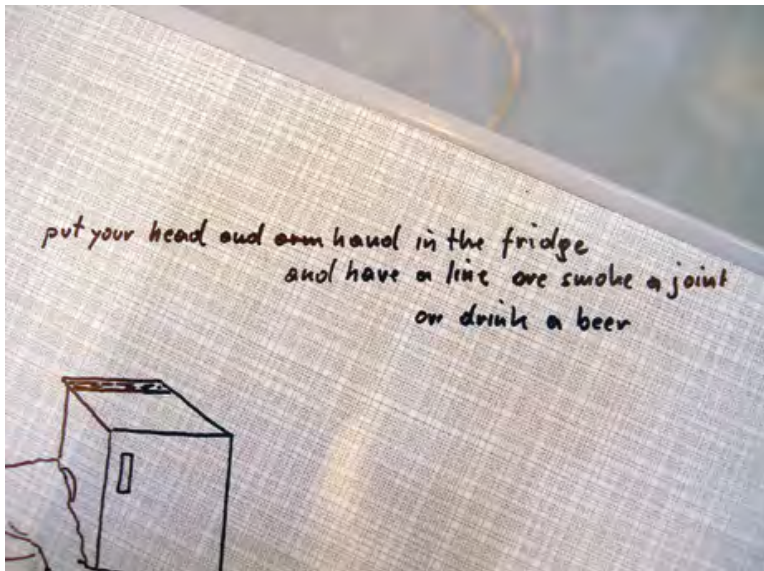 put your head and arm hand in the fridge
and have a line ore smoke a joint
or drink a beer